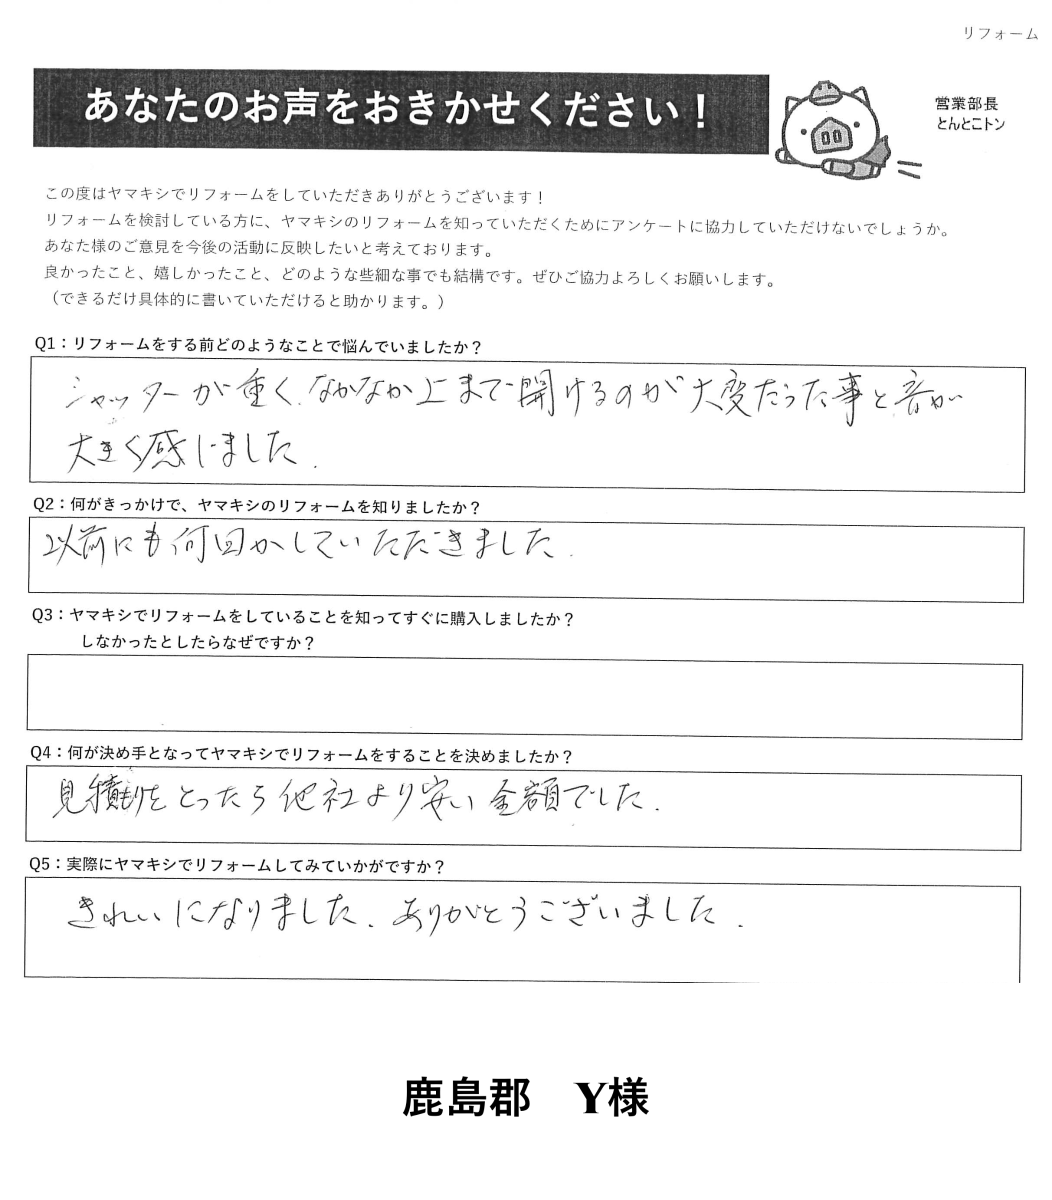 リフォーム
あなたのお声をおきかせください！
営業部長
とんとこトン
この度はヤマキシでリフォームをしていただきありがとうございます！
リフォームを検討している方に、ヤマキシのリフォームを知っていただくためにアンケートに協力していただけないでしょうか。
あなた様のご意見を今後の活動に反映したいと考えております。
良かったこと、嬉しかったこと、どのような些細な事でも結構です。ぜひご協力よろしくお願いします。
（できるだけ具体的に書いていただけると助かります。）
Q1：リフォームをする前どのようなことで悩んでいましたか？
シャッターが重く、なかなか上まで開けるのが大変だった事と音が
大きく感じました．
Q2：何がきっかけで、ヤマキシのリフォームを知りましたか？
以前にも何回かしていただきました．
Q3：ヤマキシでリフォームをしていることを知ってすぐに購入しましたか？
しなかったとしたらなぜですか？
Q4：何が決め手となってヤマキシでリフォームをすることを決めましたか？
見積もりをとったら他社より安い金額でした．
Q5：実際にヤマキシでリフォームしてみていかがですか？
きれいになりました．ありがとうございました．
鹿島郡　Y様